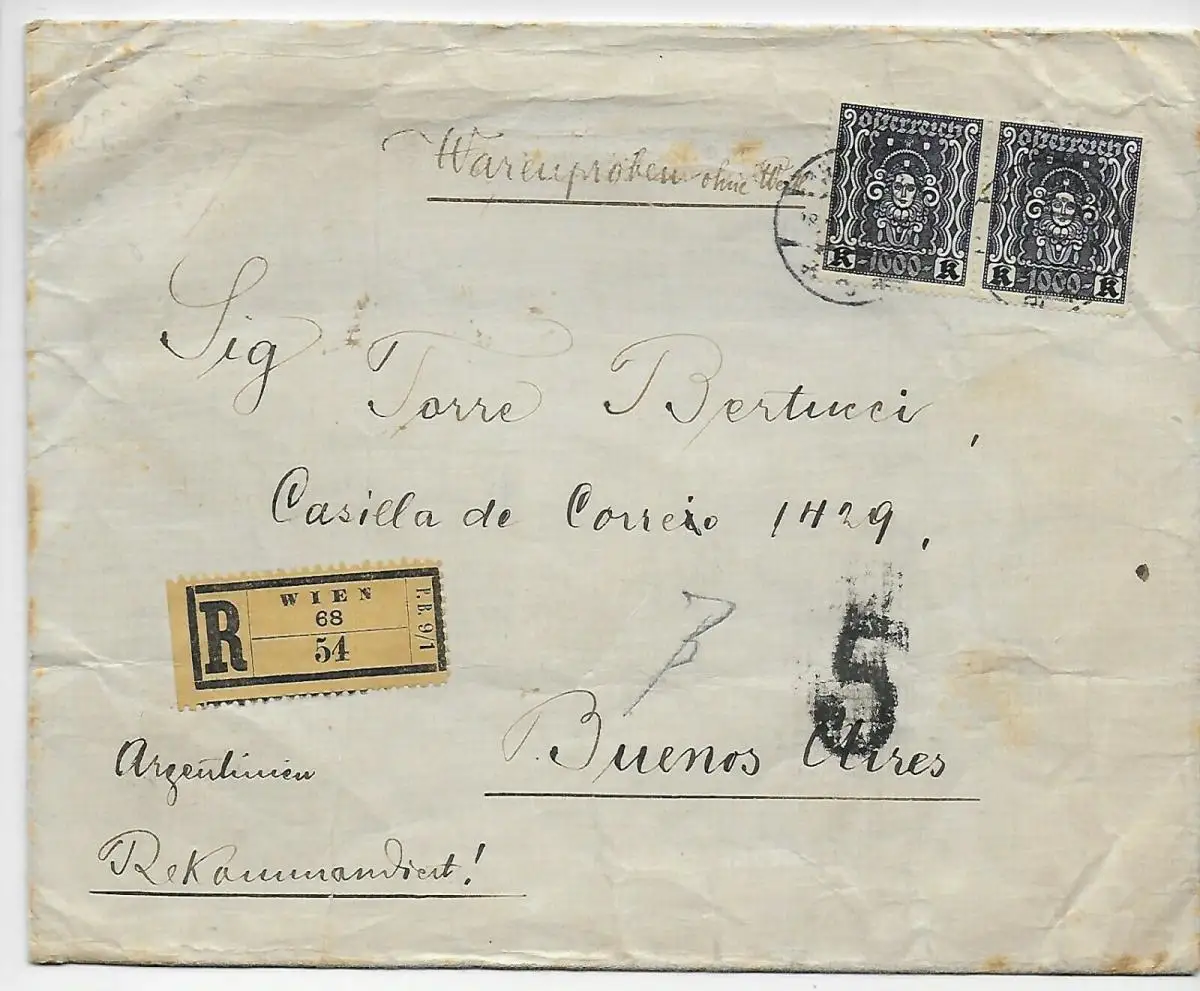 Warenproben ohne Wert
österreich österreich
K -1000- K K -1000- K
Sig Torre Bertucci,
Casilla de Correio 1429,
R WIEN
68
54
P.B. 9/1
5
Buenos Aires
Argentinien
Rekommandiert!